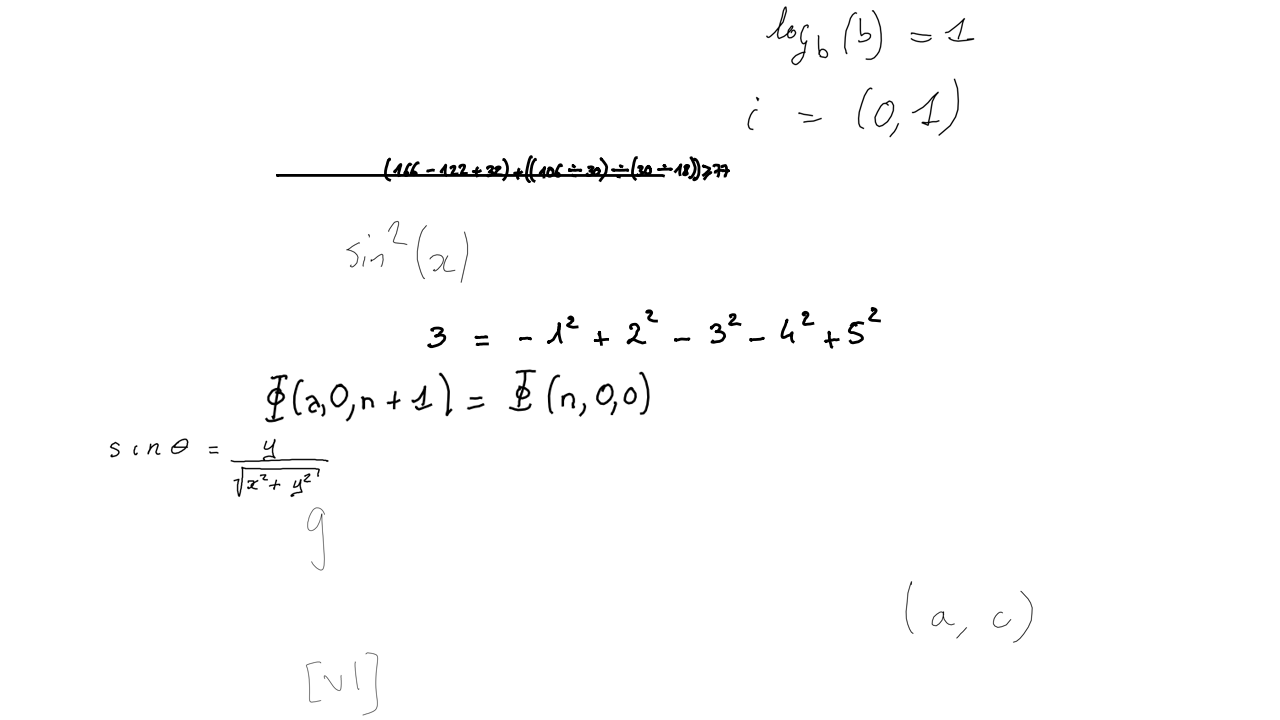 log_b(b) = 1
i = (0,1)
(166 - 122 + 32) + ((106 ÷ 30) ÷ (30 ÷ 18)) ⩾ 77
sin²(x)
3 = - 1² + 2² - 3² - 4² + 5²
Φ(a,0,n + 1) = Φ(n,0,0)
sin θ = y / √(x² + y²)
g
(a, c)
[v1]